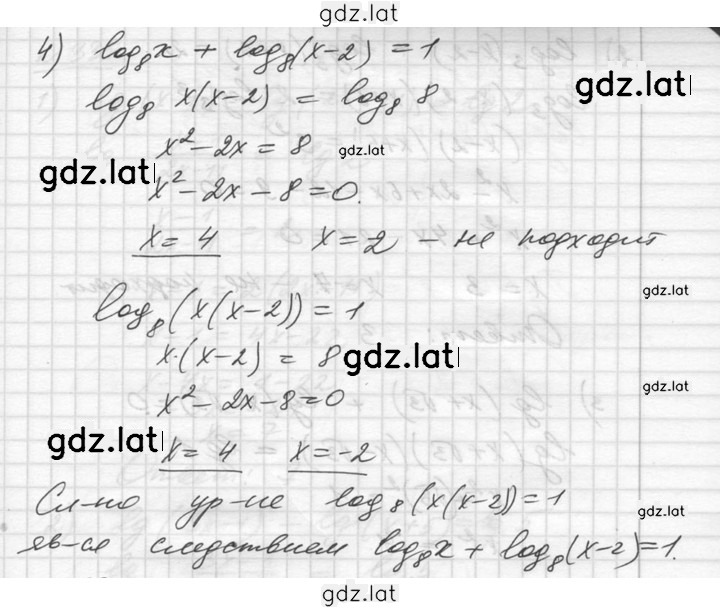 gdz.lat
4) log₈x + log₈(x-2) = 1
gdz.lat
log₈ x(x-2) = log₈ 8
x² - 2x = 8 gdz.lat
gdz.lat
x² - 2x - 8 = 0.
x = 4 x = 2 - не подходит
gdz.lat
log₈(x(x-2)) = 1
x·(x-2) = 8 gdz.lat
gdz.lat
x² - 2x - 8 = 0
gdz.lat
x = 4 x = -2
Сл-но ур-не log₈(x(x-2)) = 1
gdz.lat
яв-ся следствием log₈x + log₈(x-2) = 1.
gdz.lat